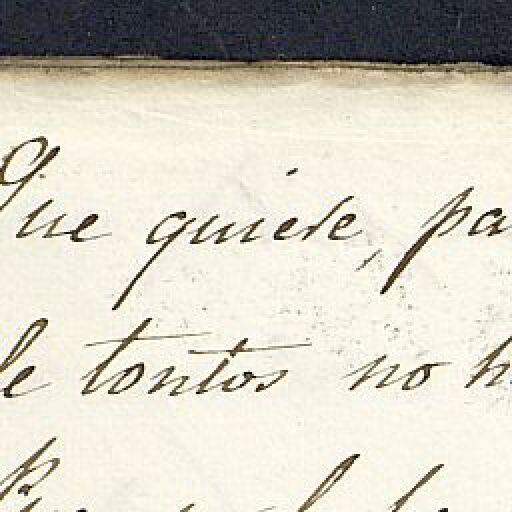 Que quiere, pa
de tontos no h